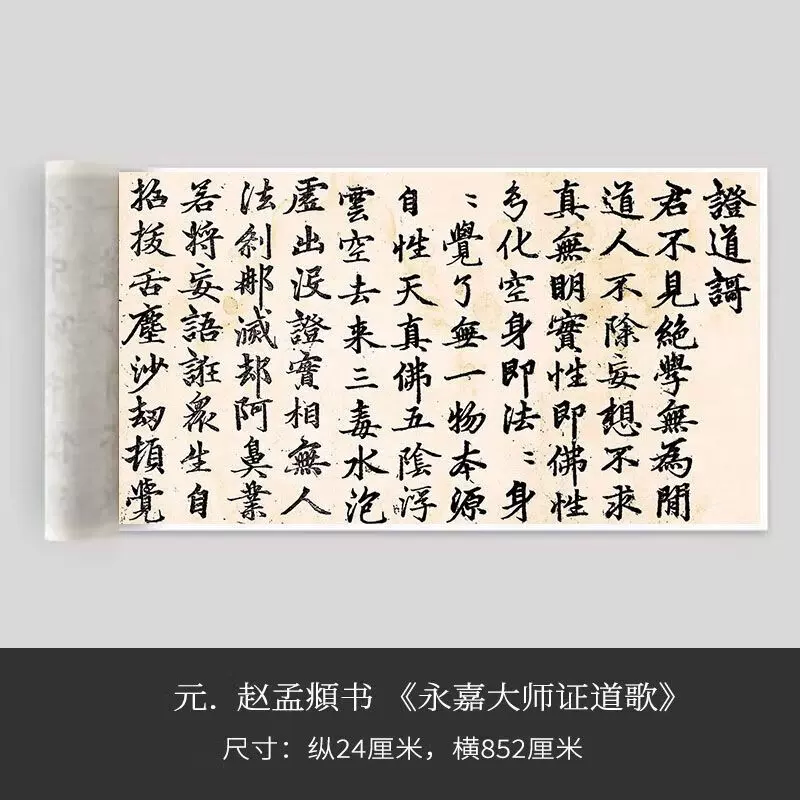 證道謌
君不見絕學無為閒
道人不除妄想不求
真無眀實性即佛性
幻化空身即法〻身
〻覺了無一物本源
自性天真佛五陰浮
雲空去来三毒水泡
虛出沒證實相無人
法剎那滅却阿鼻業
若將妄語誑眾生自
招拔舌塵沙劫頓覺
元．赵孟頫书 《永嘉大师证道歌》
尺寸：纵24厘米，横852厘米